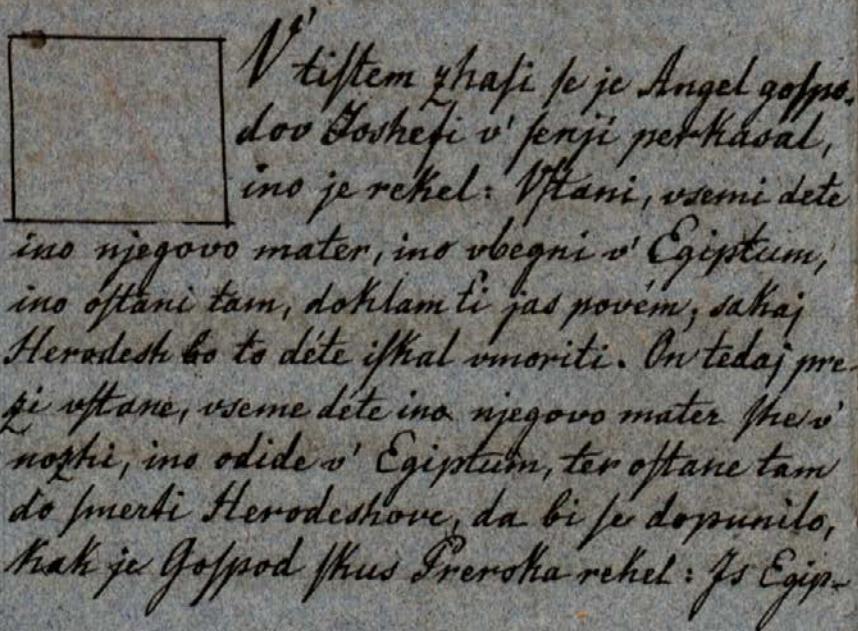 V' tiſtem zhaſi ſe je Angel goſpo-
dov Joshefi v' ſenji perkasal,
ino je rekel: Vſtani, vsemi dete
ino njegovo mater, ino vbegni v' Egiptum,
ino oſtani tam, doklam ti jas povém, sakaj
Herodesh bo to déte iſkal vmoriti. On tedaj pre-
zi vſtane, vseme déte ino njegovo mater ſhe v'
nozhi, ino odide v' Egiptum, ter oſtane tam
do ſmerti Herodeshove, da bi ſe dopunilo,
kak je Goſpod ſkus Preroka rekel: Is Egip-